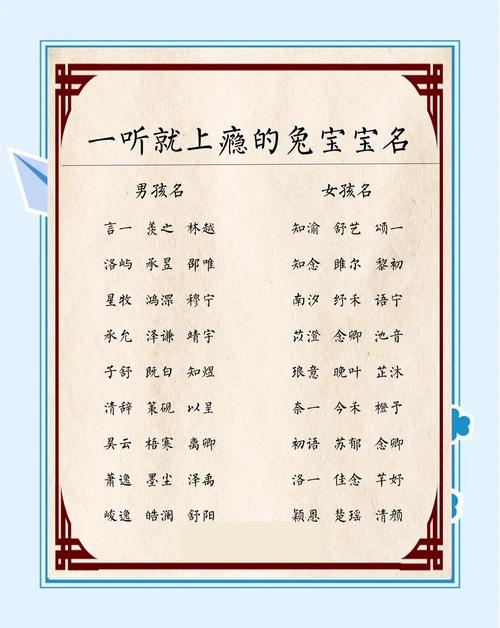 一听就上瘾的兔宝宝名
男孩名 女孩名
言一 羡之 林越 知渝 舒艺 颂一
洛屿 承昱 邵唯 知念 雎尔 黎初
星牧 鸿深 穆宁 南汐 纾禾 语宁
承允 泽谦 靖宇 苡澄 念卿 池音
子舒 既白 知煜 琅意 晚叶 芷沐
清辞 策砚 以呈 奈一 今禾 橙予
吴云 梧寒 禹卿 初语 苏郁 念卿
萧逸 墨尘 泽禹 洛一 佳念 芊妤
峻逸 皓澜 舒阳 颖恩 楚瑶 清颜